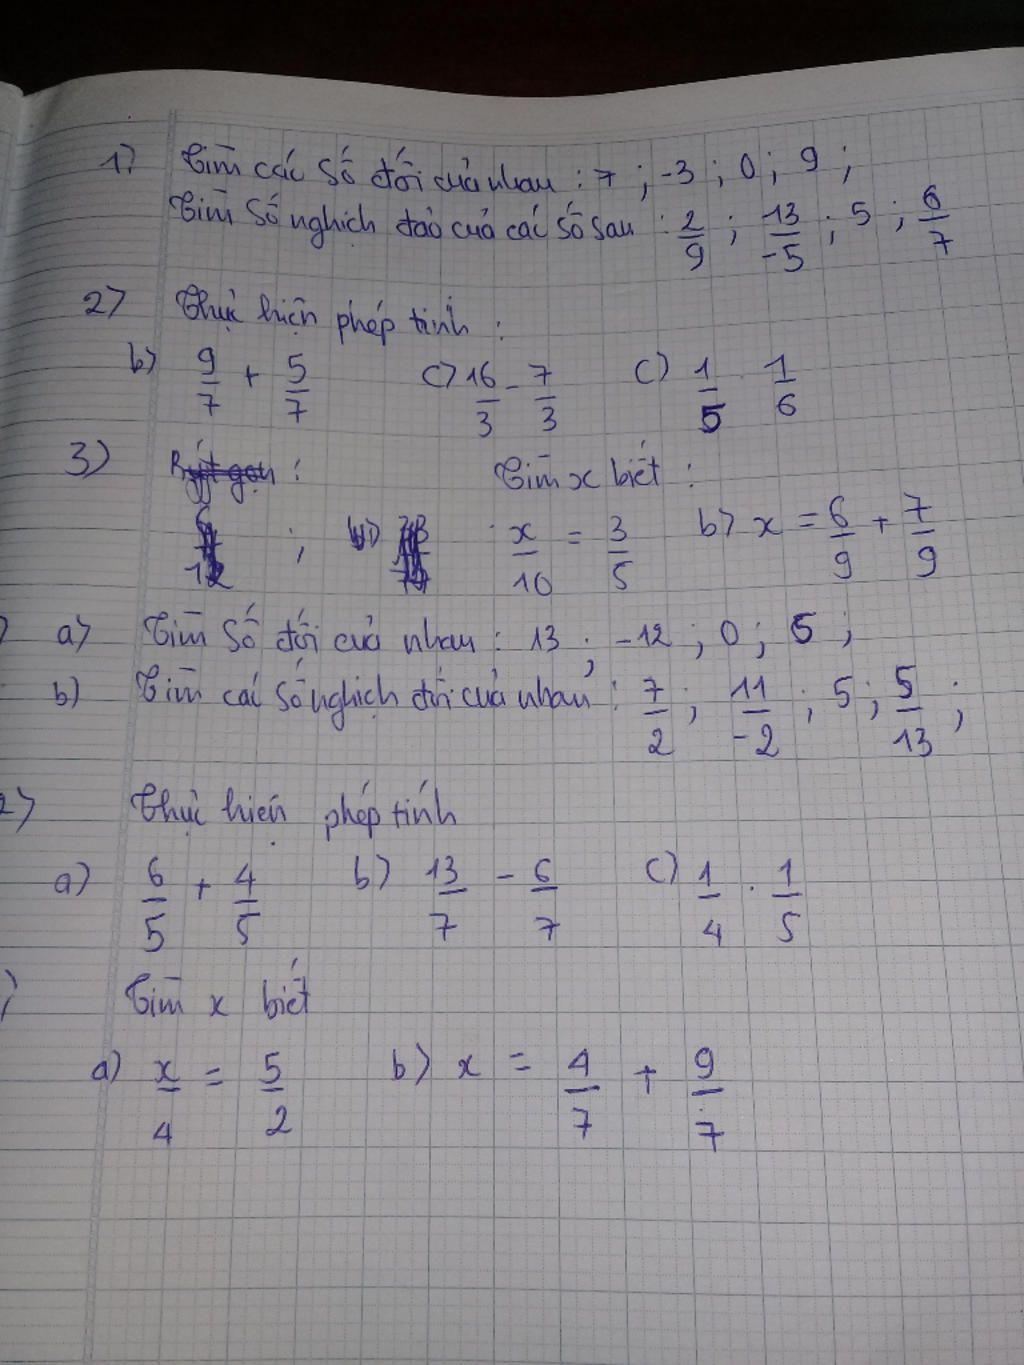 1) Tìm các số đối của nhau : 7 ; -3 ; 0 ; 9 ;
Tìm số nghịch đảo của các số sau : 2/9 ; 13/-5 ; 5 ; 6/7
2) Thực hiện phép tính :
b) 9/7 + 5/7 c) 16/3 - 7/3 c) 1/5 . 1/6
3) Rút gọn : Tìm x biết :
x/10 = 3/5 b) x = 6/9 + 7/9
a) Tìm số đối của nhau : 13 ; -12 ; 0 ; 5 ;
b) Tìm các số nghịch đối của nhau : 7/2 ; 11/-2 ; 5 ; 5/13 ;
2) Thực hiện phép tính
a) 6/5 + 4/5 b) 13/7 - 6/7 c) 1/4 . 1/5
) Tìm x biết
a) x/4 = 5/2 b) x = 4/7 + 9/7